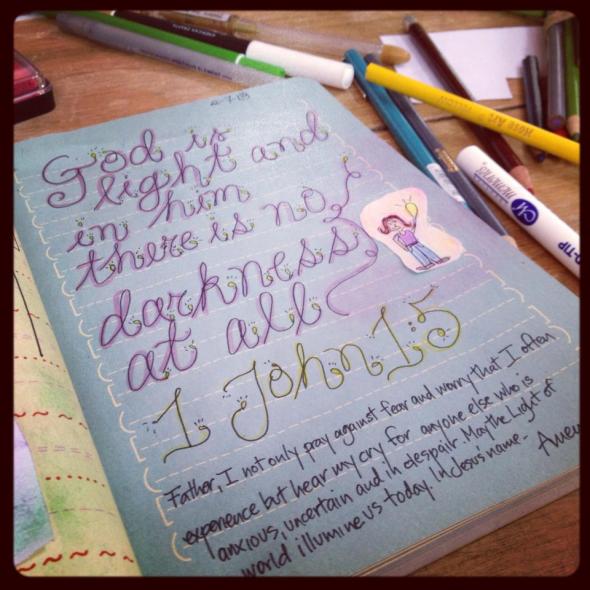 4-7-13
God is
light and
in him
there is no
darkness
at all
1 John 1:5
Father, I not only pray against fear and worry that I often
experience but hear my cry for anyone else who is
anxious, uncertain and in despair. May the Light of
world illumine us today. In Jesus name-
Amen